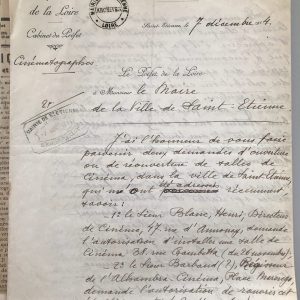 de la Loire
Cabinet du Préfet
Cinématographes
Saint-Etienne, le 7 décembre 14.
LOIRE
Le Préfet de la Loire
à Monsieur le Maire
de la Ville de Saint-Etienne
J'ai l'honneur de vous faire
parvenir deux demandes d'ouverture
ou de réouverture de salles de
Cinéma, dans la ville de Saint-Etienne,
qui m'ont adressées récemment,
savoir :
1° le Sieur Blanc, Henri, Directeur
de Cinéma, 47, rue d'Annonay, demande
l'autorisation d'installer une salle de
Cinéma 38, rue Gambetta (du 26 novembre);
2° le Sieur Barbaud (?), Régisseur
de l'Alhambra-Cinéma, Place Marengo,
demande l'autorisation de rouvrir et